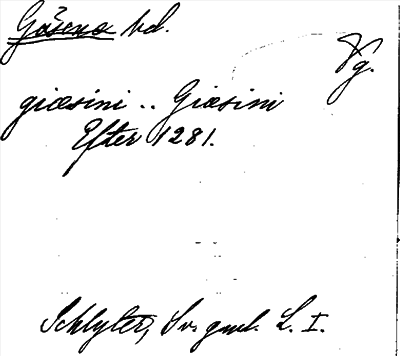 Gåsene hd.
Vg.
giæsini .. Giæsini
Efter 1281.
Schlyter, Sv. gml. L. I.